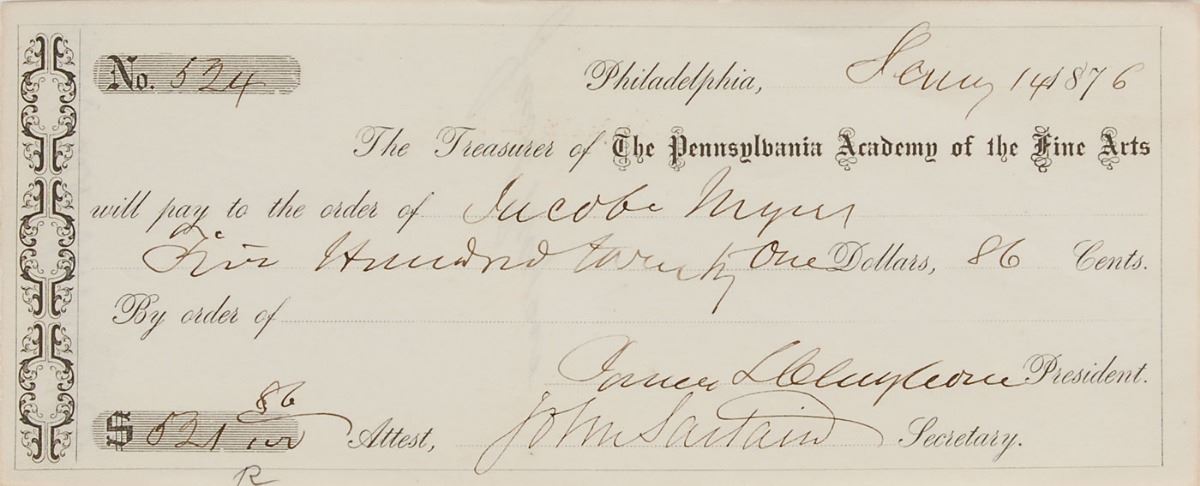 No. 524 Philadelphia, Jany 14 1876
The Treasurer of The Pennsylvania Academy of the Fine Arts
will pay to the order of Jacob Myers
Five Hundred twenty One Dollars, 86 Cents.
By order of
James L Claghorn President.
$ 521 86/100 Attest, John Sartain Secretary.
R